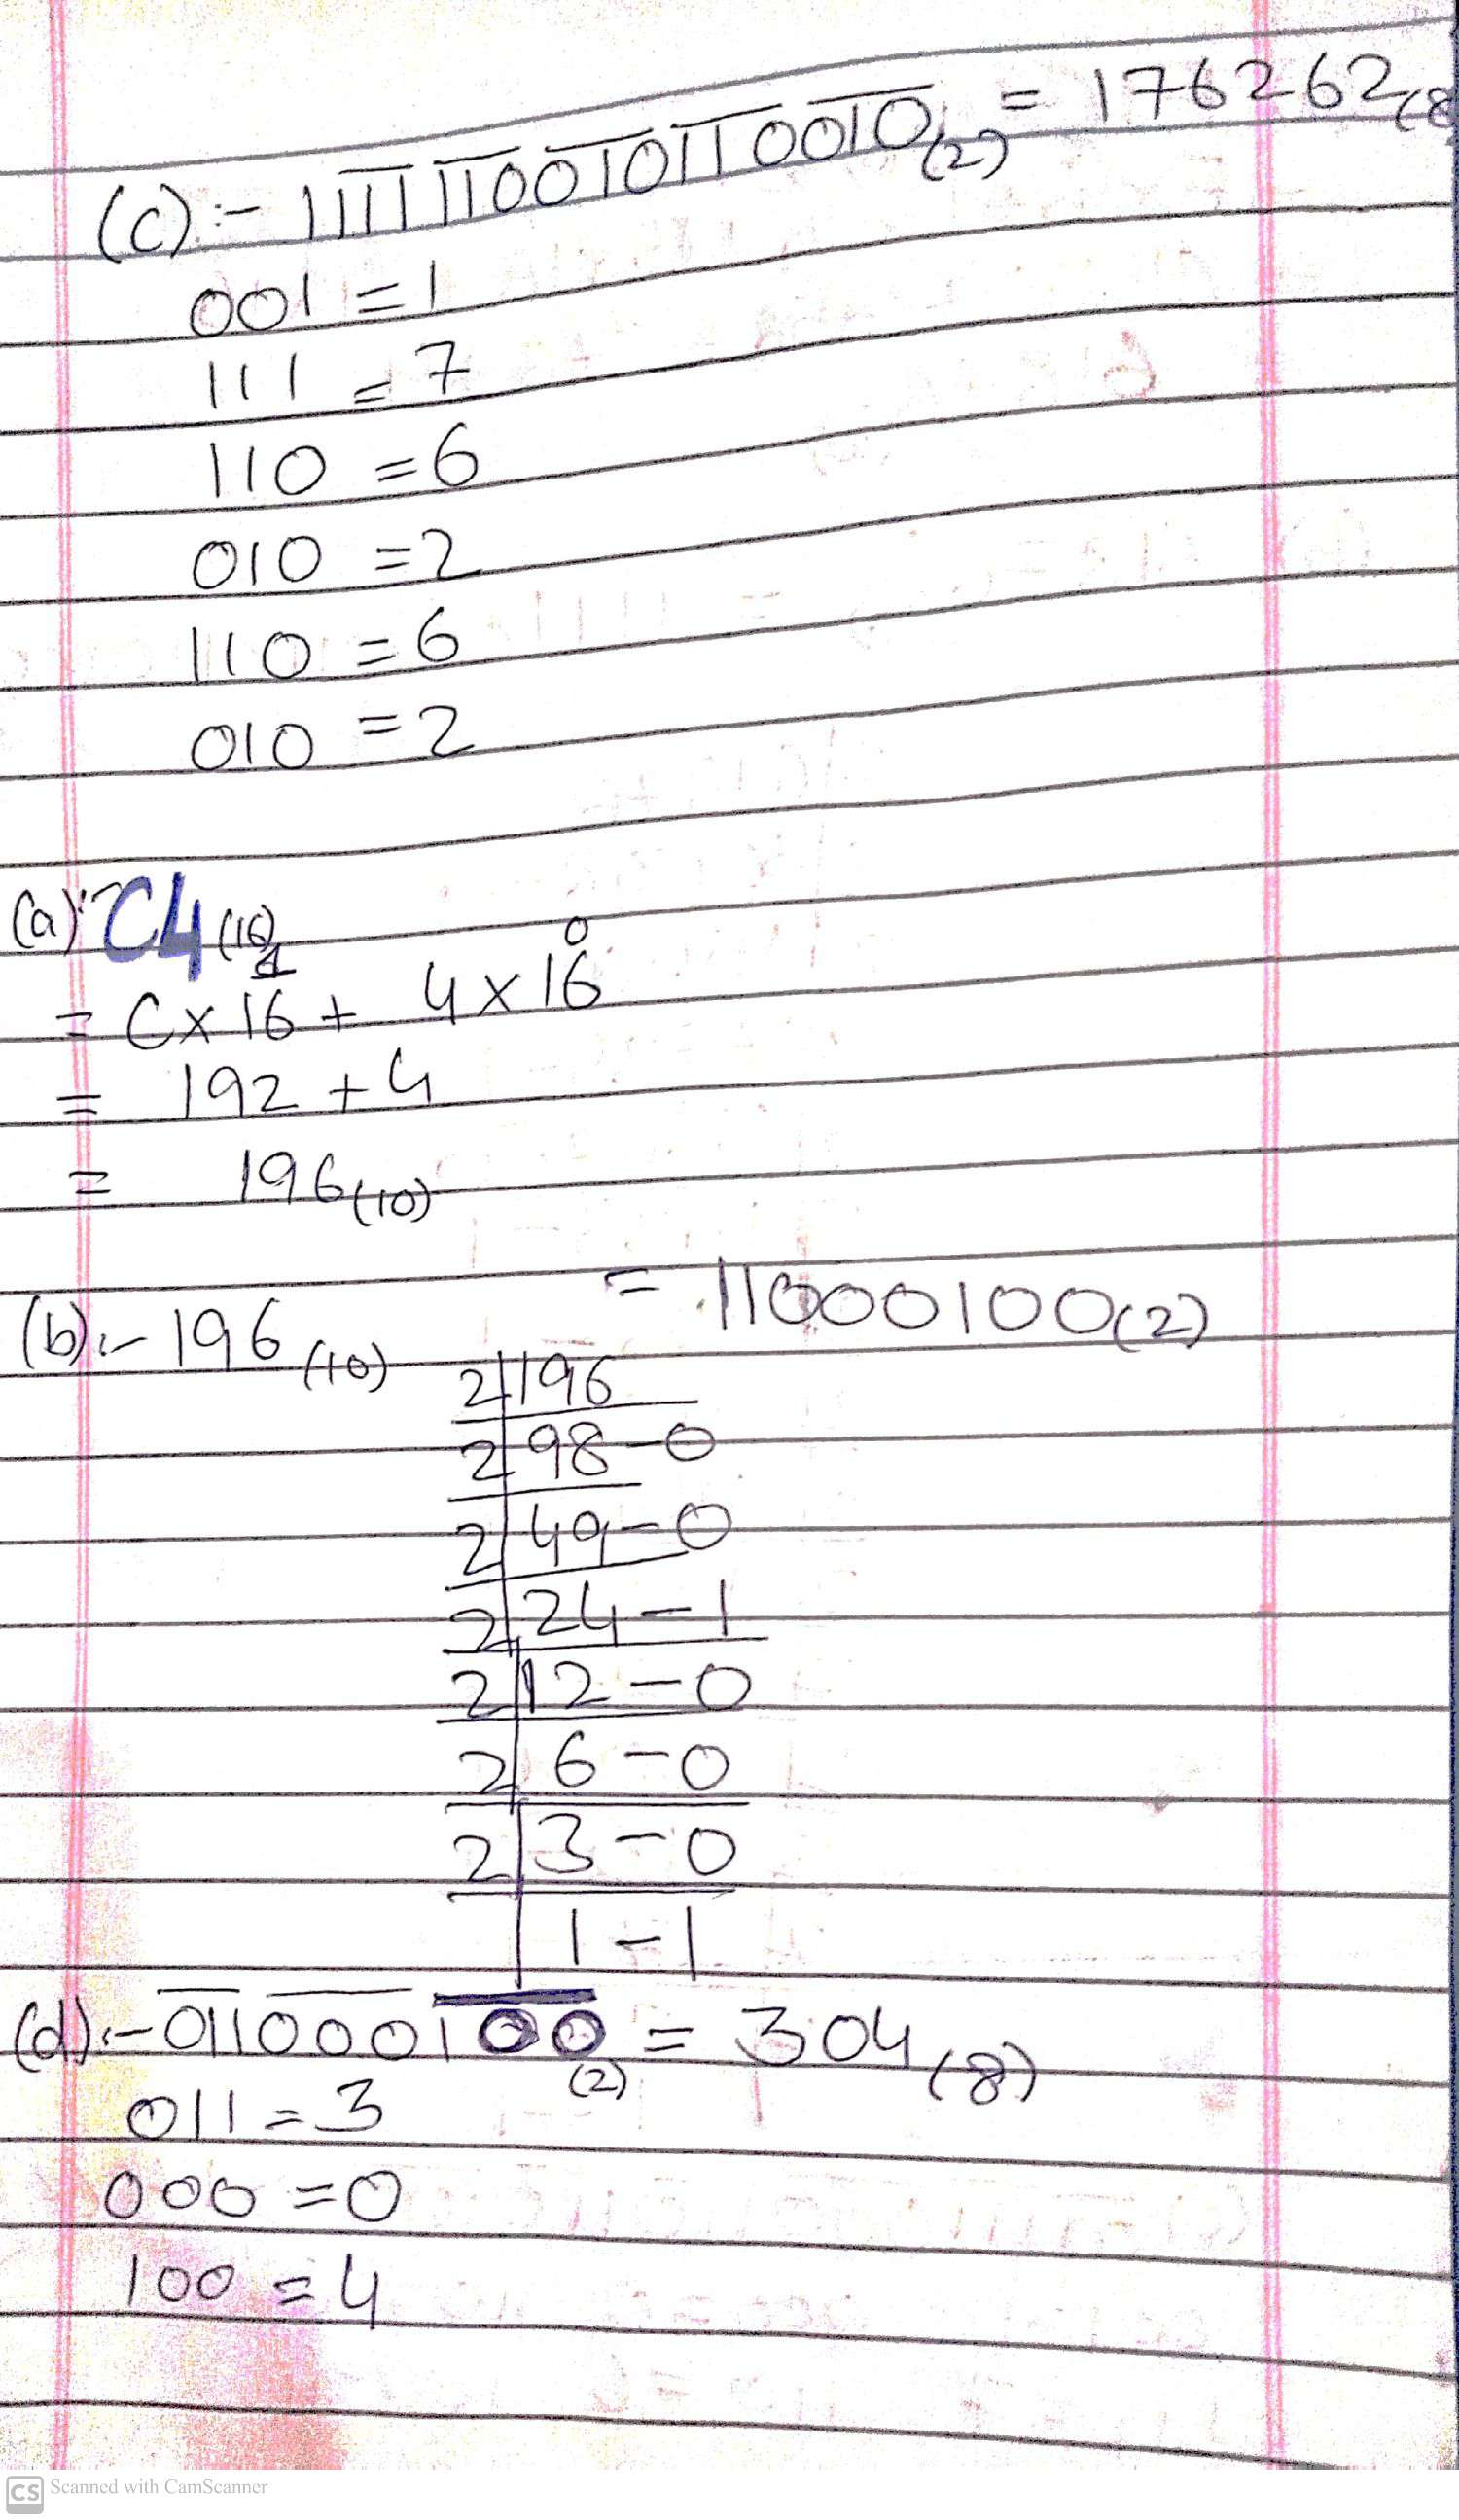 (c):- 1111110010110010(2) = 176262(8
001 = 1
111 = 7
110 = 6
010 = 2
110 = 6
010 = 2
(a):- C4(16)
= C x 16¹ + 4 x 16⁰
= 192 + 4
= 196(10)
(b):- 196(10) = 11000100(2)
2 | 196
2 | 98 - 0
2 | 49 - 0
2 | 24 - 1
2 | 12 - 0
2 | 6 - 0
2 | 3 - 0
1 - 1
(d):- 011000100(2) = 304(8)
011 = 3
000 = 0
100 = 4
CS Scanned with CamScanner